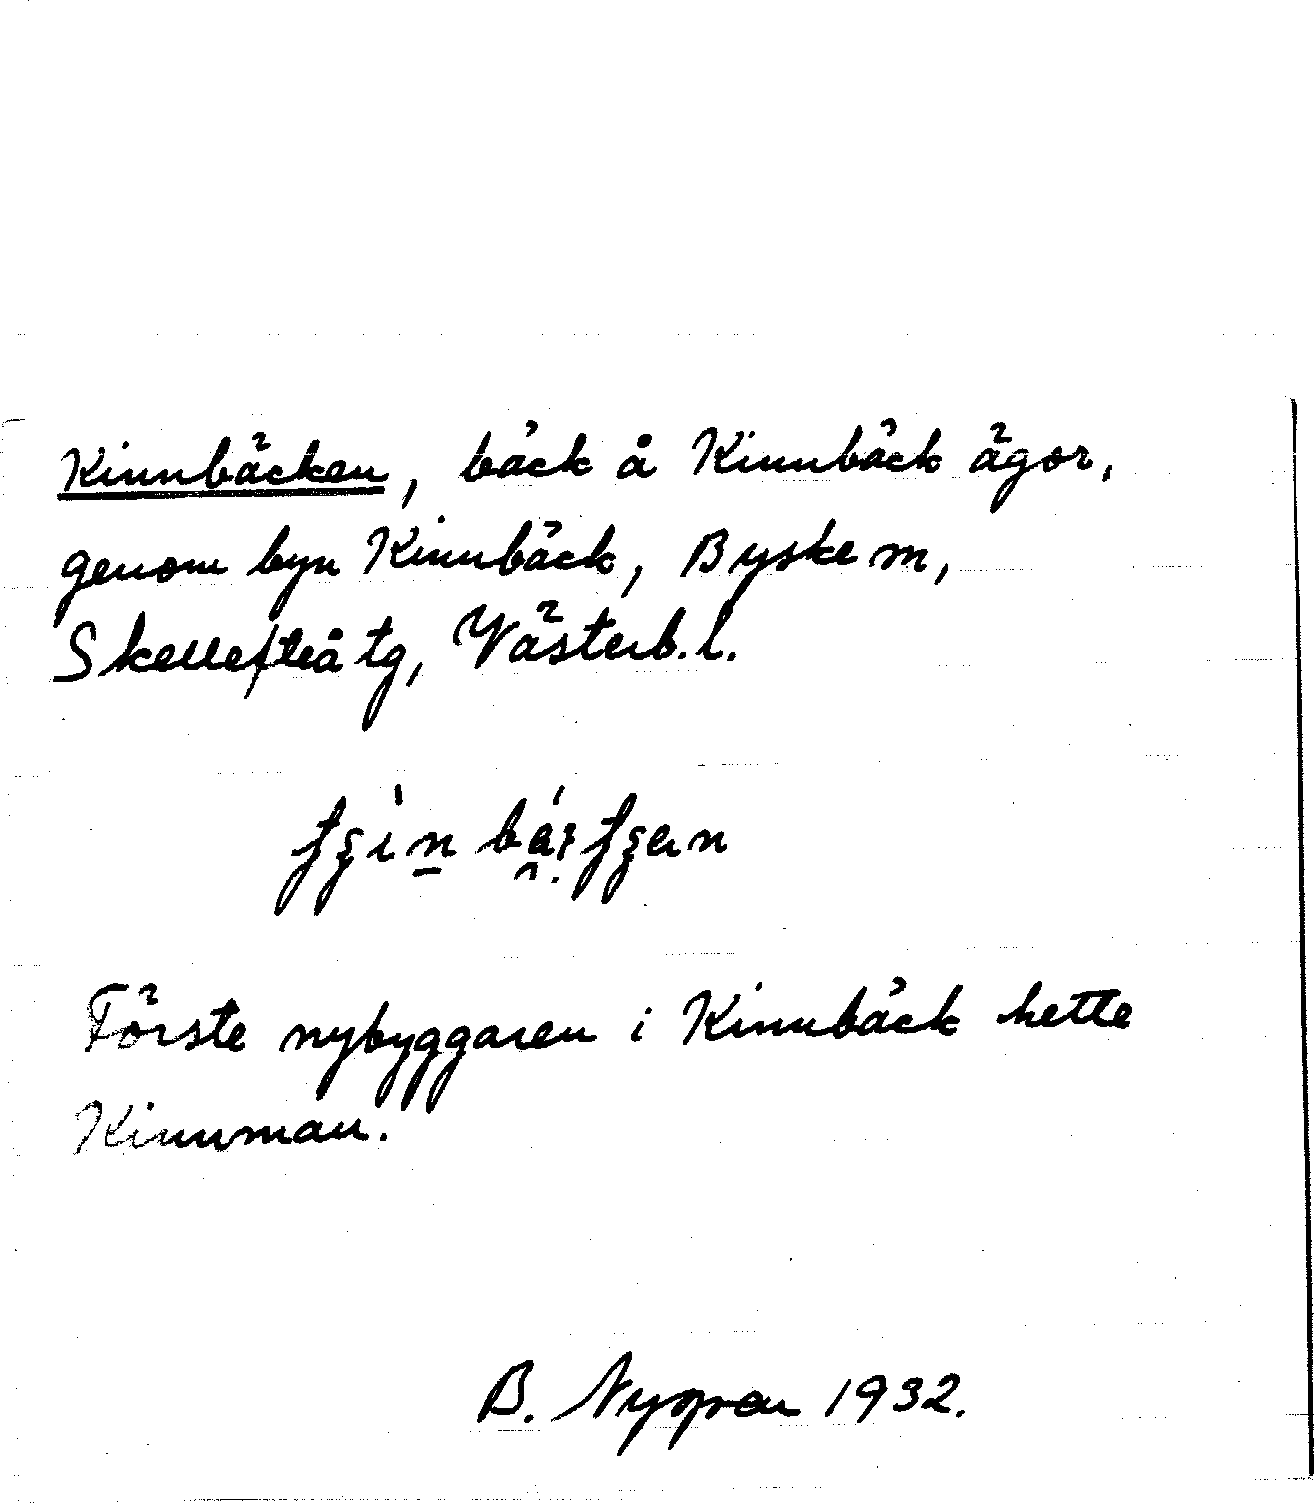 Kinnbäcken, bäck å Kinnbäck ägor,
genom byn Kinnbäck, Byske m,
Skellefteå tg, Västerb. l.
Förste nybyggaren i Kinnbäck hette
Kinnman.
B. Nygren 1932.